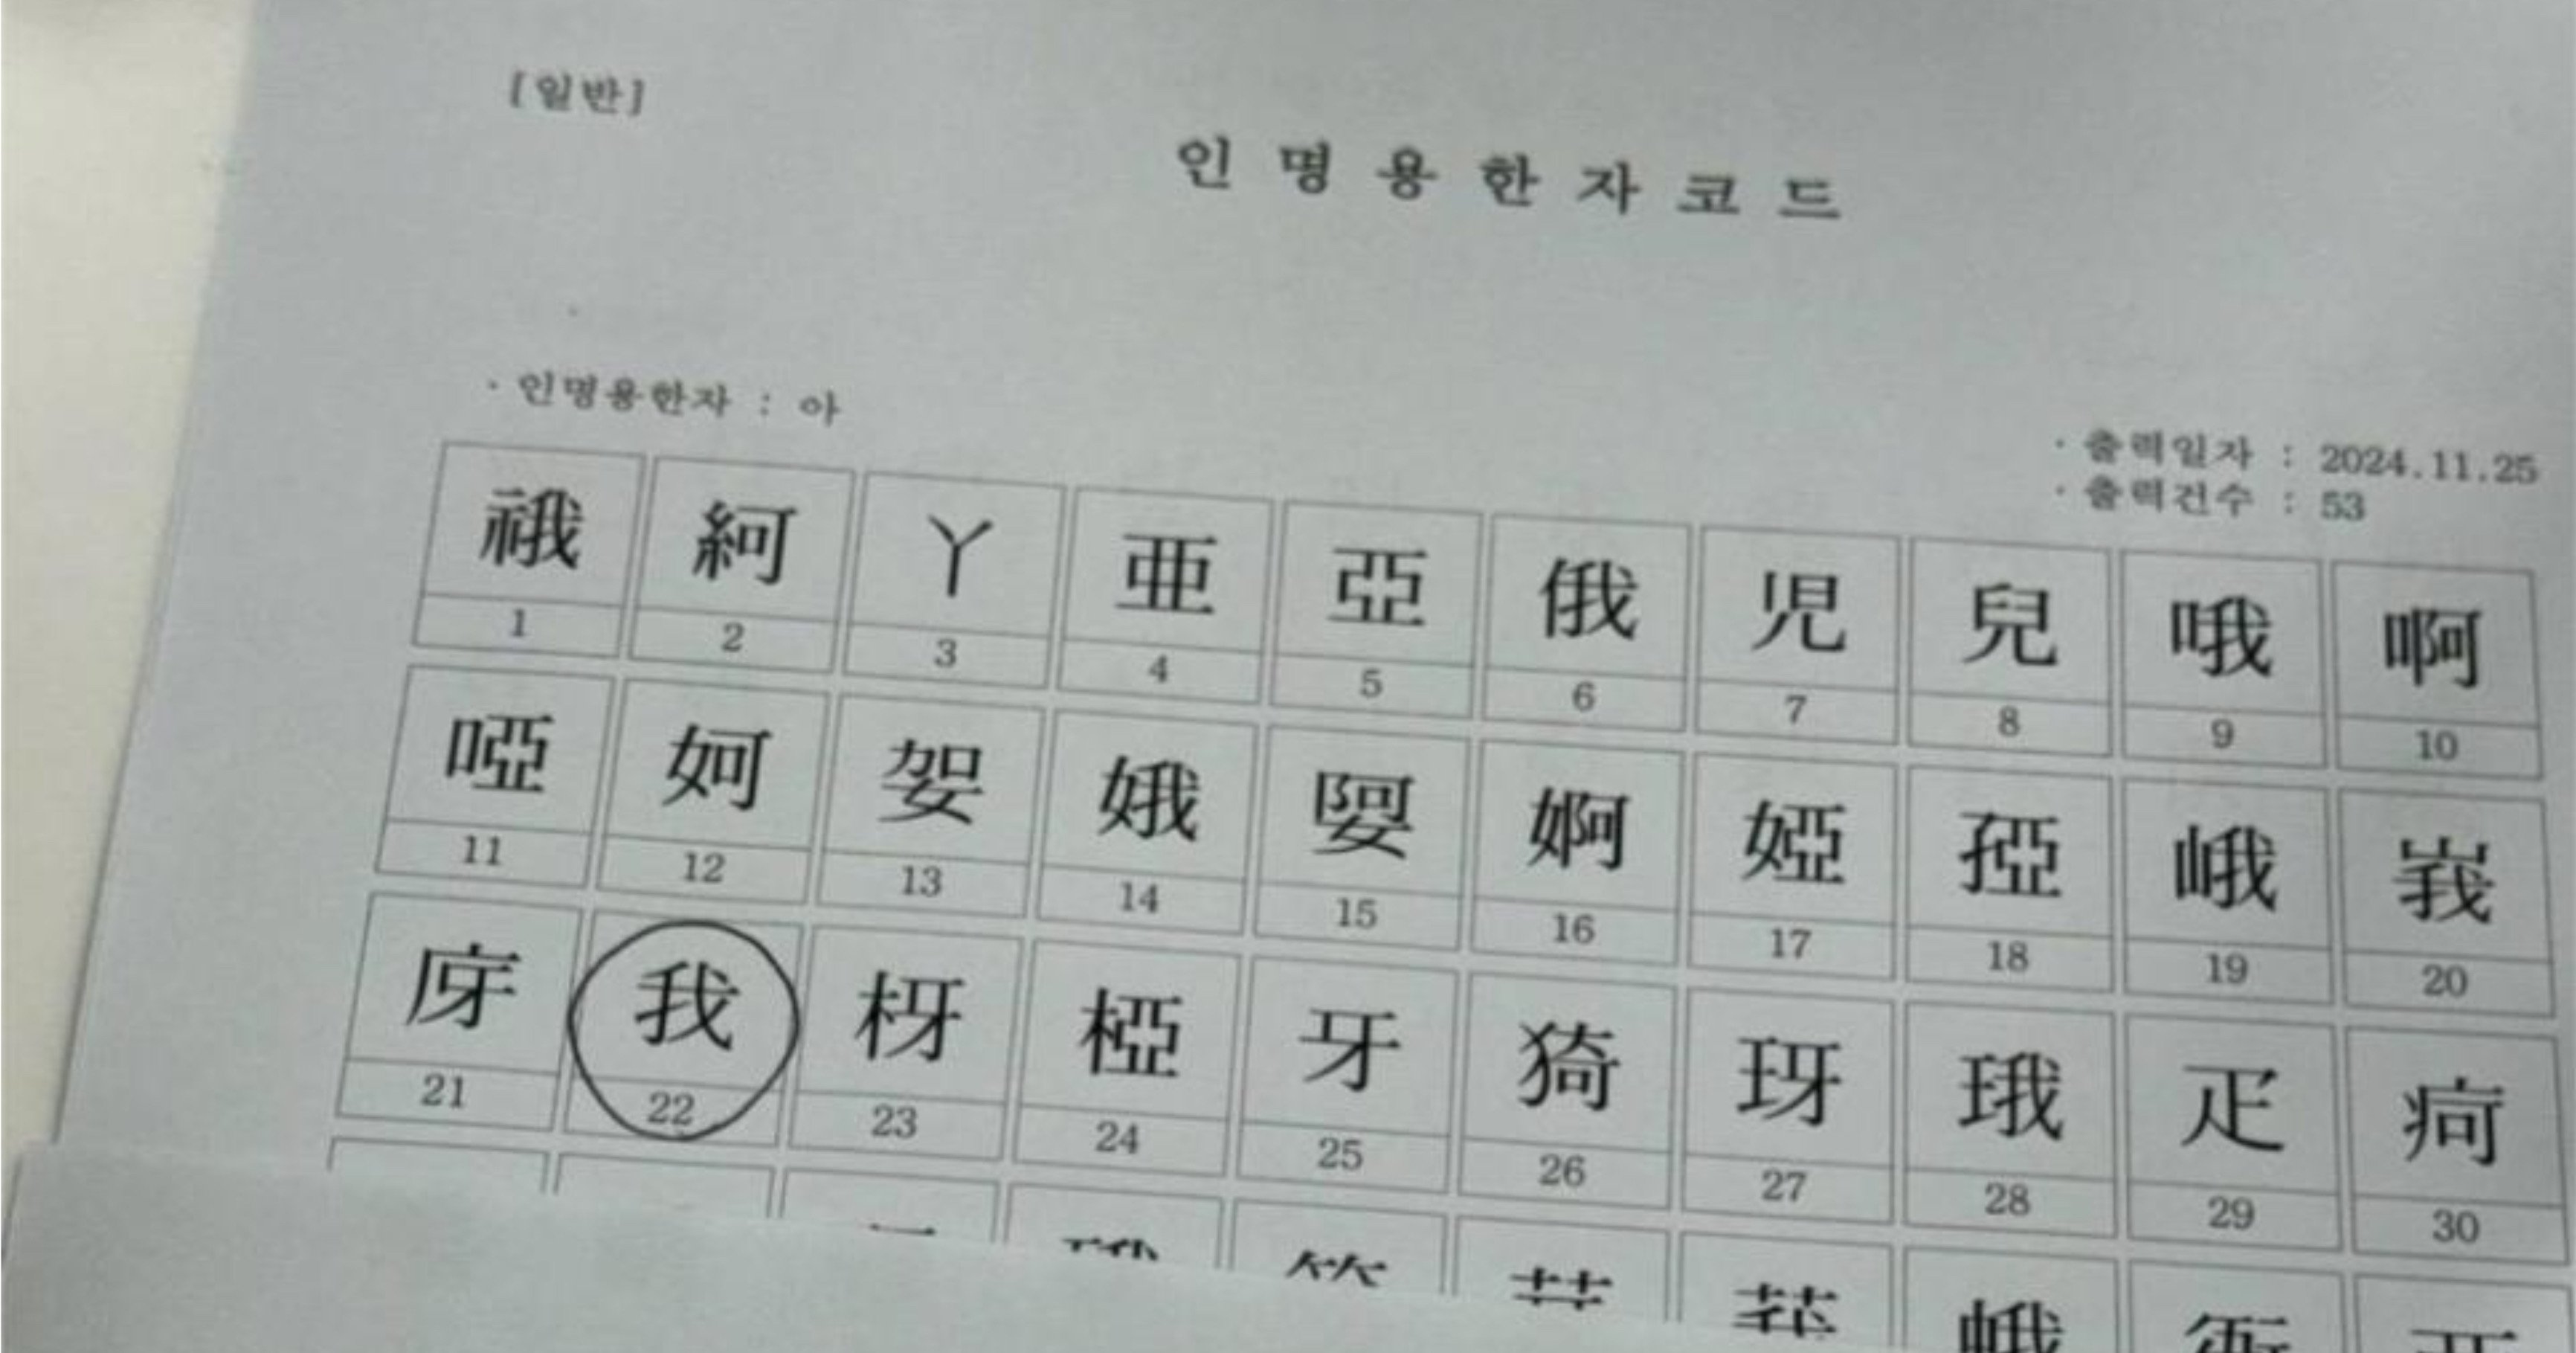 [일반]
인 명 용 한 자 코 드
· 인명용한자 : 아
· 출력일자 : 2024.11.25
· 출력건수 : 53
䄉 䋪 丫 亜 亞 俄 児 兒 哦 啊
1 2 3 4 5 6 7 8 9 10
啞 妸 娿 娥 婴 婀 婭 孲 峨 峩
11 12 13 14 15 16 17 18 19 20
庌 我 枒 椏 牙 猗 玡 珴 疋 疴
21 22 23 24 25 26 27 28 29 30